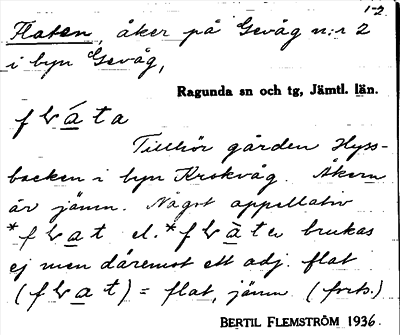 1-2
Flaten, åker på Gevåg n:r 2
i byn Gevåg,
Ragunda sn och tg, Jämtl. län.
fláta
Tillhör gården Hyss-
backen i byn Krokvåg. Åkern
är jämn. Något appellativ
*flat el. *flàte brukas
ej men däremot ett adj. flat
(flat) = flat, jämn (forts.)
BERTIL FLEMSTRÖM 1936.